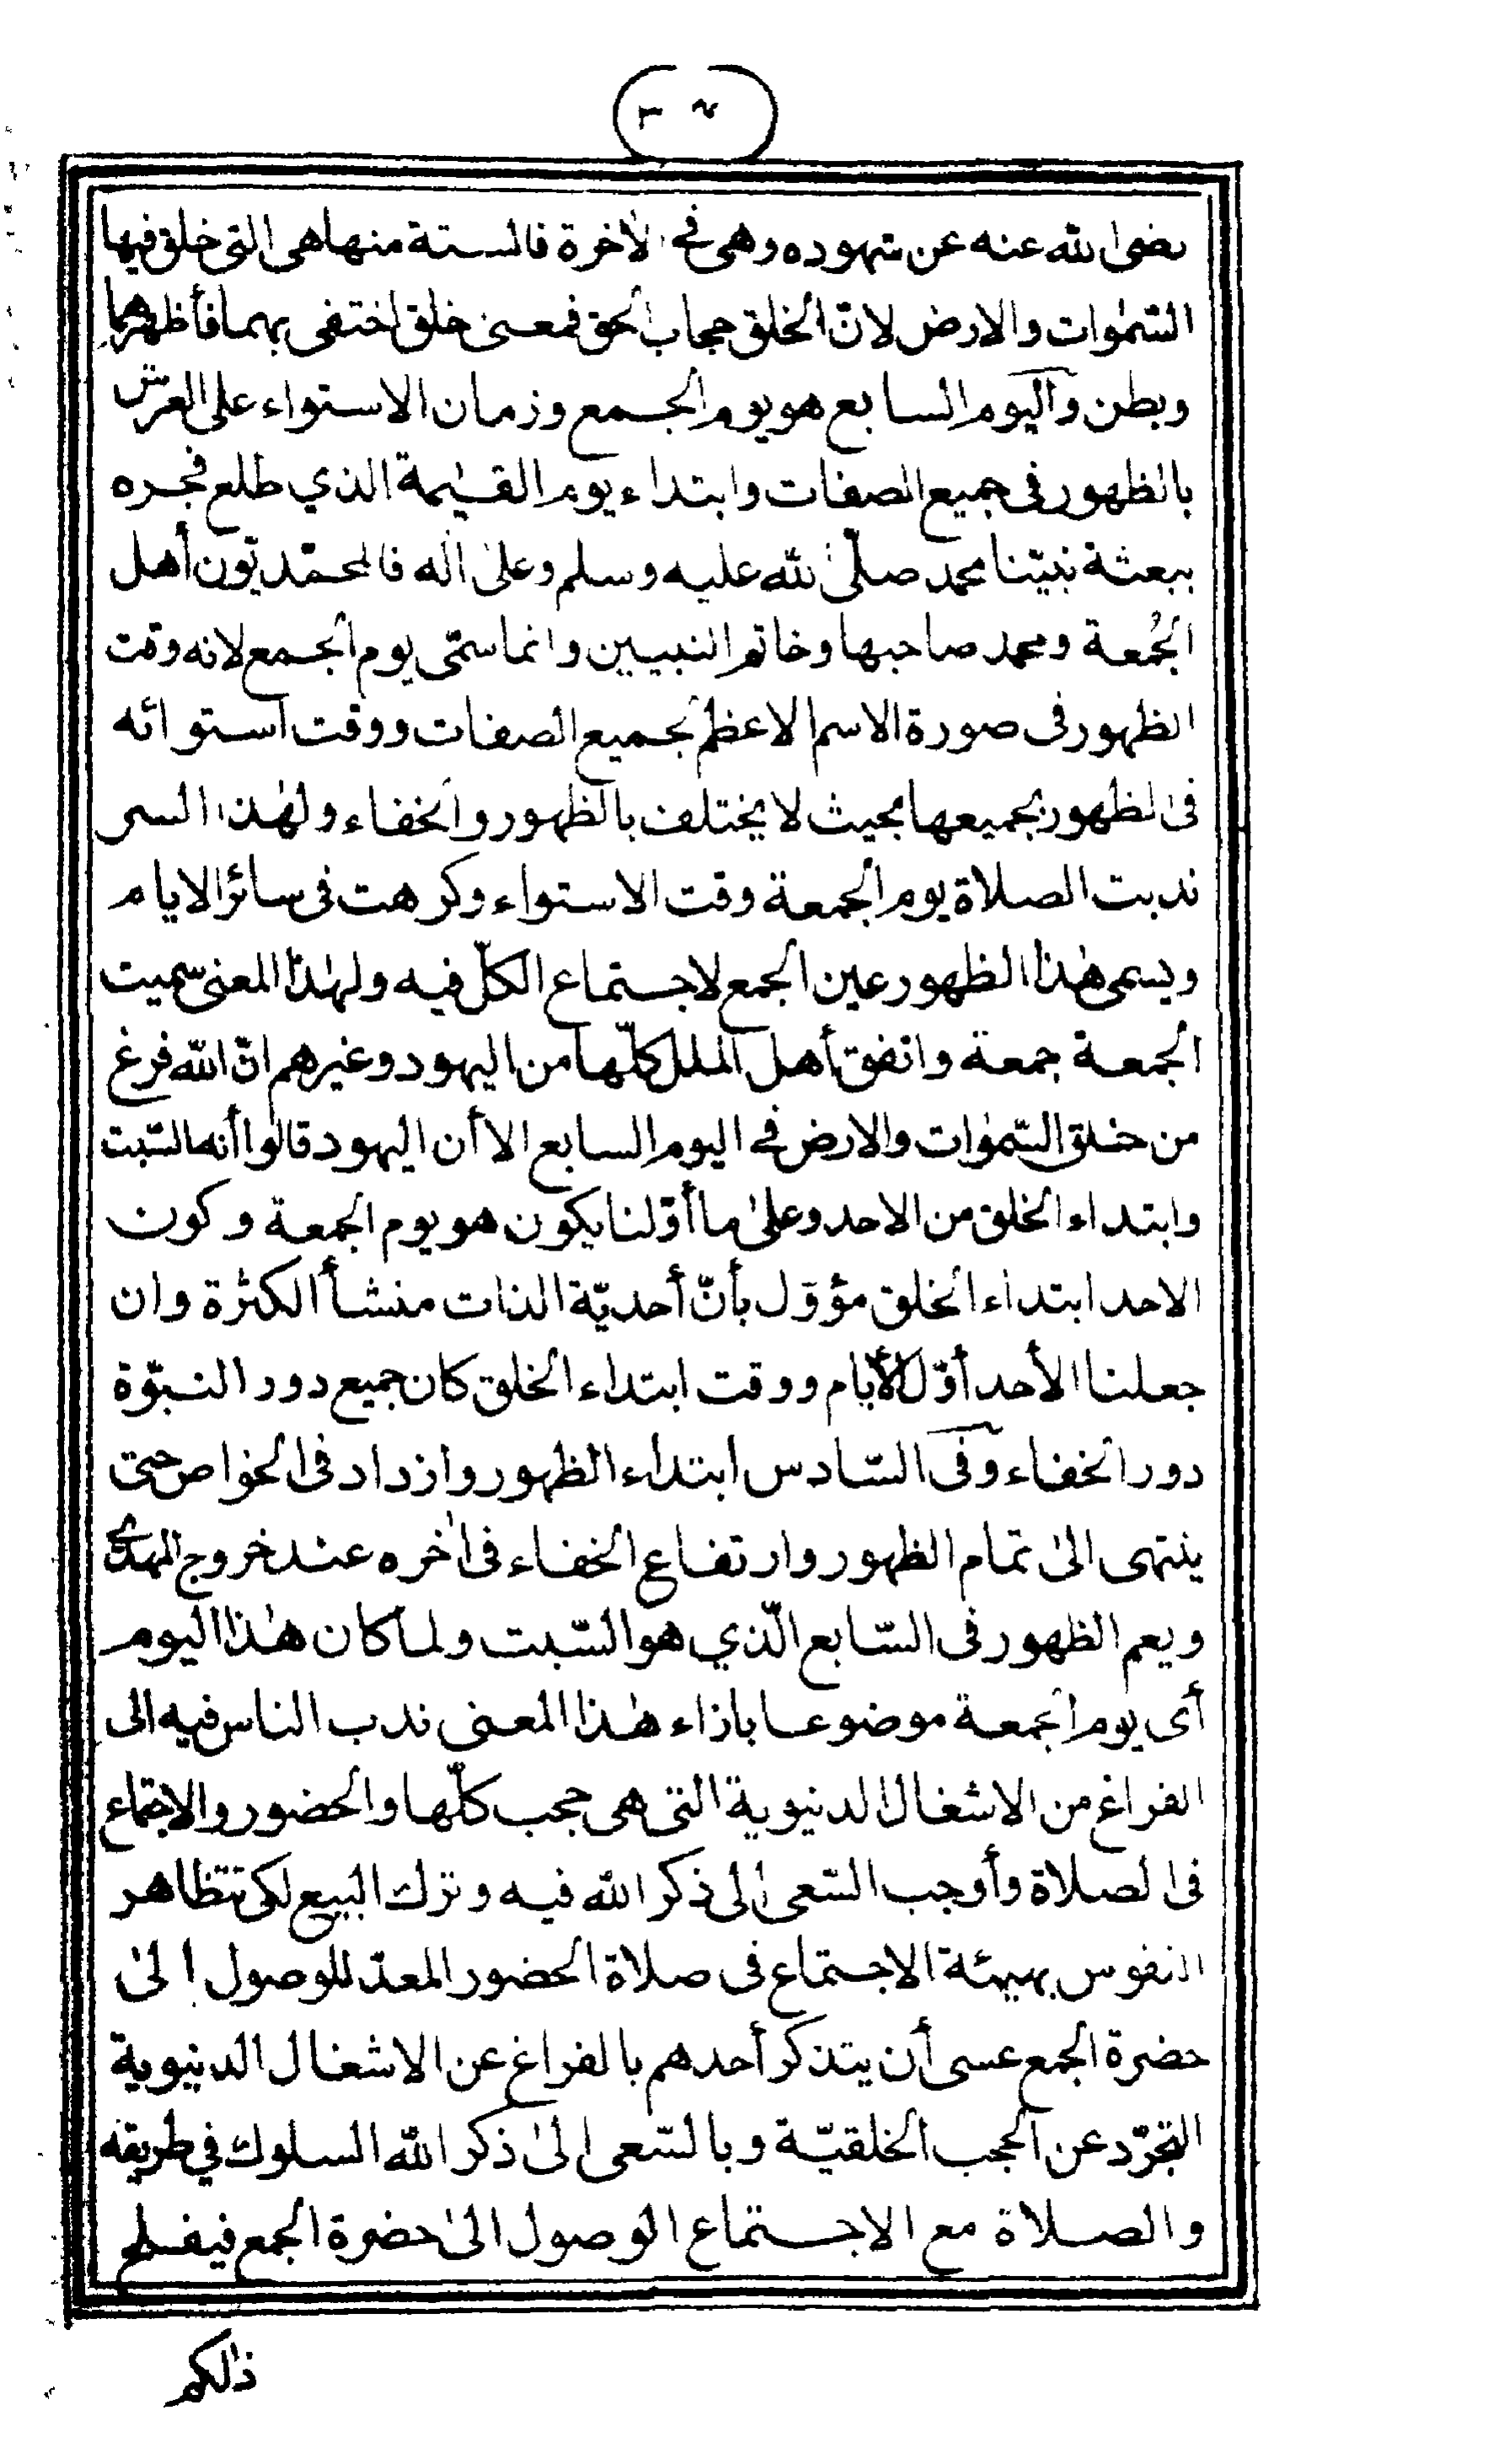 رضى الله عنه عن شهوده وهى فى الاٰخرة فالستة منها هى التى خلق فيها
السّمٰوات والارض لانّ الخلق حجاب الحق فمعنى خلق اختفى بهما فأظهرهما
وبطن واليوم السابع هو يوم الجمع وزمان الاستواء على العرش
بالظهور فى جميع الصفات وابتداء يوم القيٰمة الذي طلع فجره
ببعثة نبيّنا محمد صلّى الله عليه وسلم وعلىٰ اٰله فالمحمّديّون أهل
الجُمعة ومحمد صاحبها وخاتم النبيين وانما سمّى يوم الجمع لانه وقت
الظهور فى صورة الاسم الاعظم بجميع الصفات ووقت استوائه
فى الظهور بجميعها بحيث لا يختلف بالظهور والخفاء ولهٰذا السر
ندبت الصلاة يوم الجمعة وقت الاستواء وكرهت فى سائر الايام
ويسمى هٰذا الظهور عين الجمع لاجتماع الكلّ فيه ولهٰذا المعنى سميت
الجمعة جمعة واتفق أهل الملل كلّها من اليهود وغيرهم انّ الله فرغ
من خلق السّمٰوات والارض فى اليوم السابع الا أن اليهود قالوا أنه السّبت
وابتداء الخلق من الاحد وعلىٰ ما أوّلنا يكون هو يوم الجمعة وكون
الاحد ابتداء الخلق مؤوّل بأنّ أحديّة الذات منشأ الكثرة وان
جعلنا الأحد أوّل الأيام ووقت ابتداء الخلق كان جميع دور النبوّة
دور الخفاء وفى السّادس ابتداء الظهور وازداد فى الخواص حتى
ينتهى الىٰ تمام الظهور وارتفاع الخفاء فى اٰخره عند خروج المهدى
ويعم الظهور فى السّابع الّذي هو السّبت ولما كان هٰذا اليوم
أى يوم الجمعة موضوعا بازاء هٰذا المعنى ندب الناس فيه الى
الفراغ من الاشغال الدنيوية التى هى حجب كلّها والحضور والاجتماع
فى الصلاة وأوجب السّعى الى ذكر الله فيه وترك البيع لكى تتظاهر
النفوس بهيئة الاجتماع فى صلاة الحضور المعدّ للوصول الىٰ
حضرة الجمع عسى أن يتذكر أحدهم بالفراغ عن الاشغال الدنيوية
التجرّد عن الحجب الخلقيّة وبالسّعى الىٰ ذكر الله السلوك في طريقه
والصلاة مع الاجتماع الوصول الىٰ حضرة الجمع فيفلح
ذٰلكم